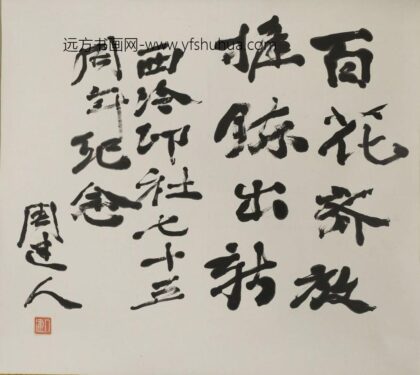 远方书画网-www.yfshuhua.com
百花齐放
推陈出新
西泠印社七十五
周年纪念
周建人